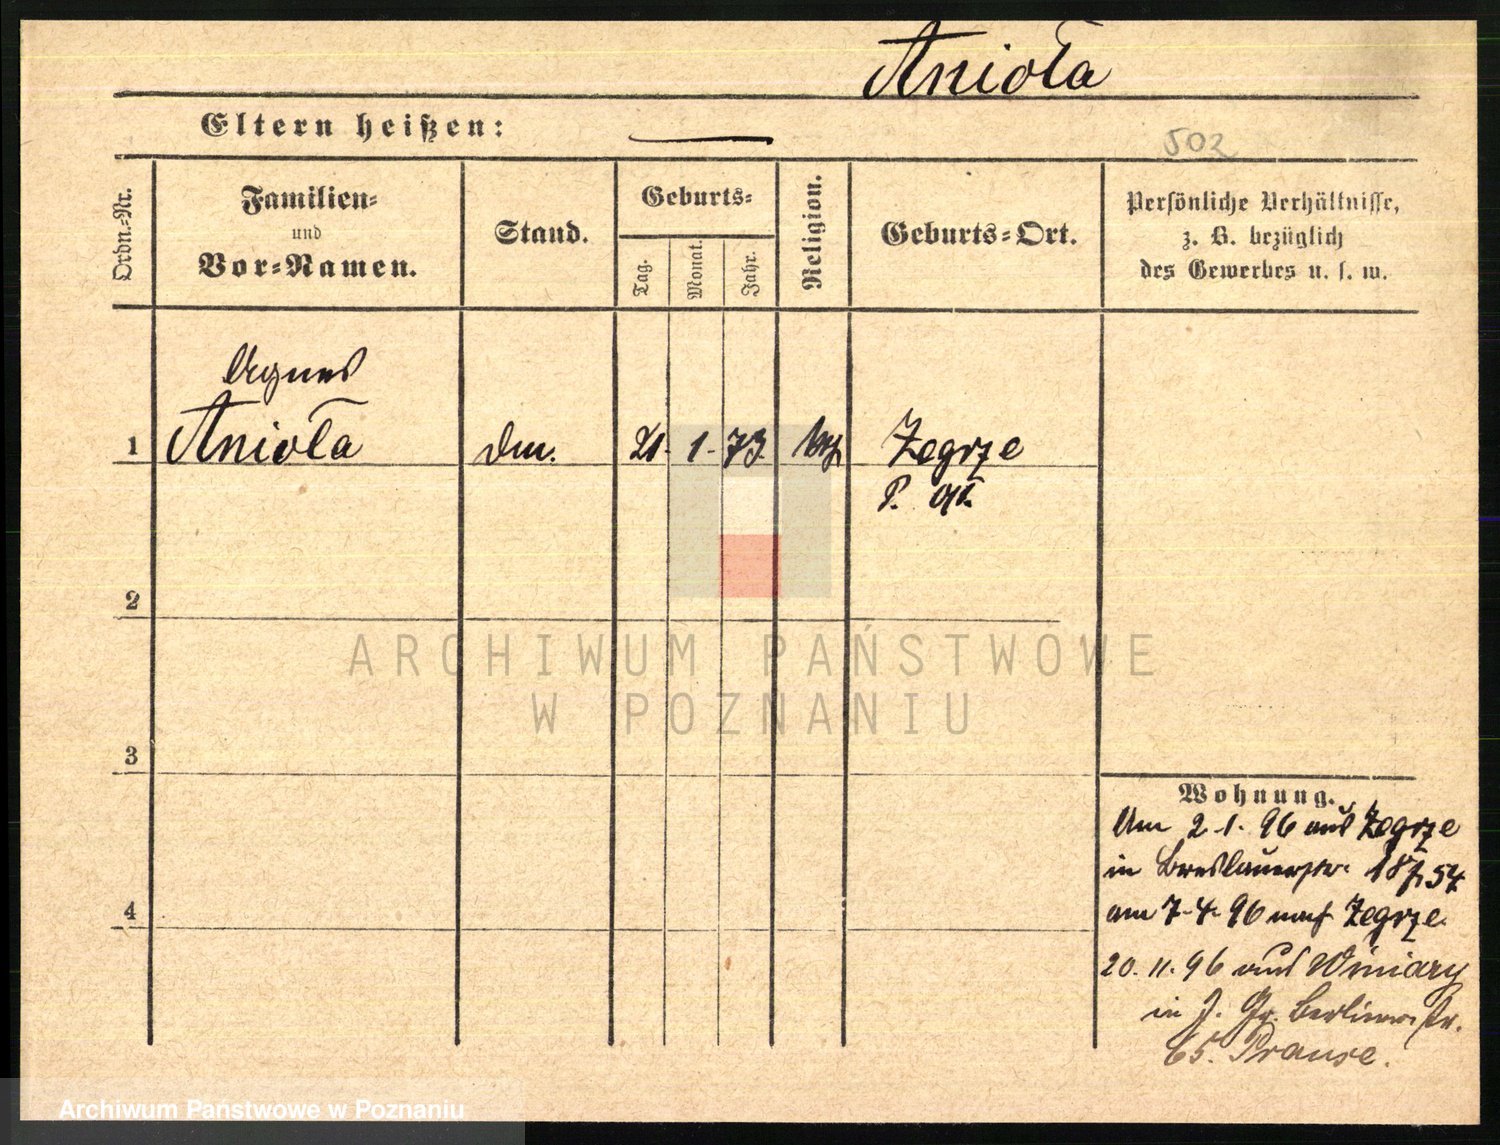 Anioła
Eltern heißen:
502
Ordn.-Nr.
Familien-
und
Vor-Namen.
Stand.
Geburts-
Tag.
Monat.
Jahr.
Religion.
Geburts-Ort.
Persönliche Verhältnisse,
z. B. bezüglich
des Gewerbes u. s. w.
Agnes
1 Anioła 21. 1. 73. Zegrze
P.
2
ARCHIWUM PAŃSTWOWE
W POZNANIU
3
Wohnung.
Am 2.1.96 aus Zegrze
in Breslauerstr. 18
4
am 7.4.96 nach Zegrze.
20.11.96 aus Winiary
in J. Gr. Berlinerstr.
65. Prause.
Archiwum Państwowe w Poznaniu